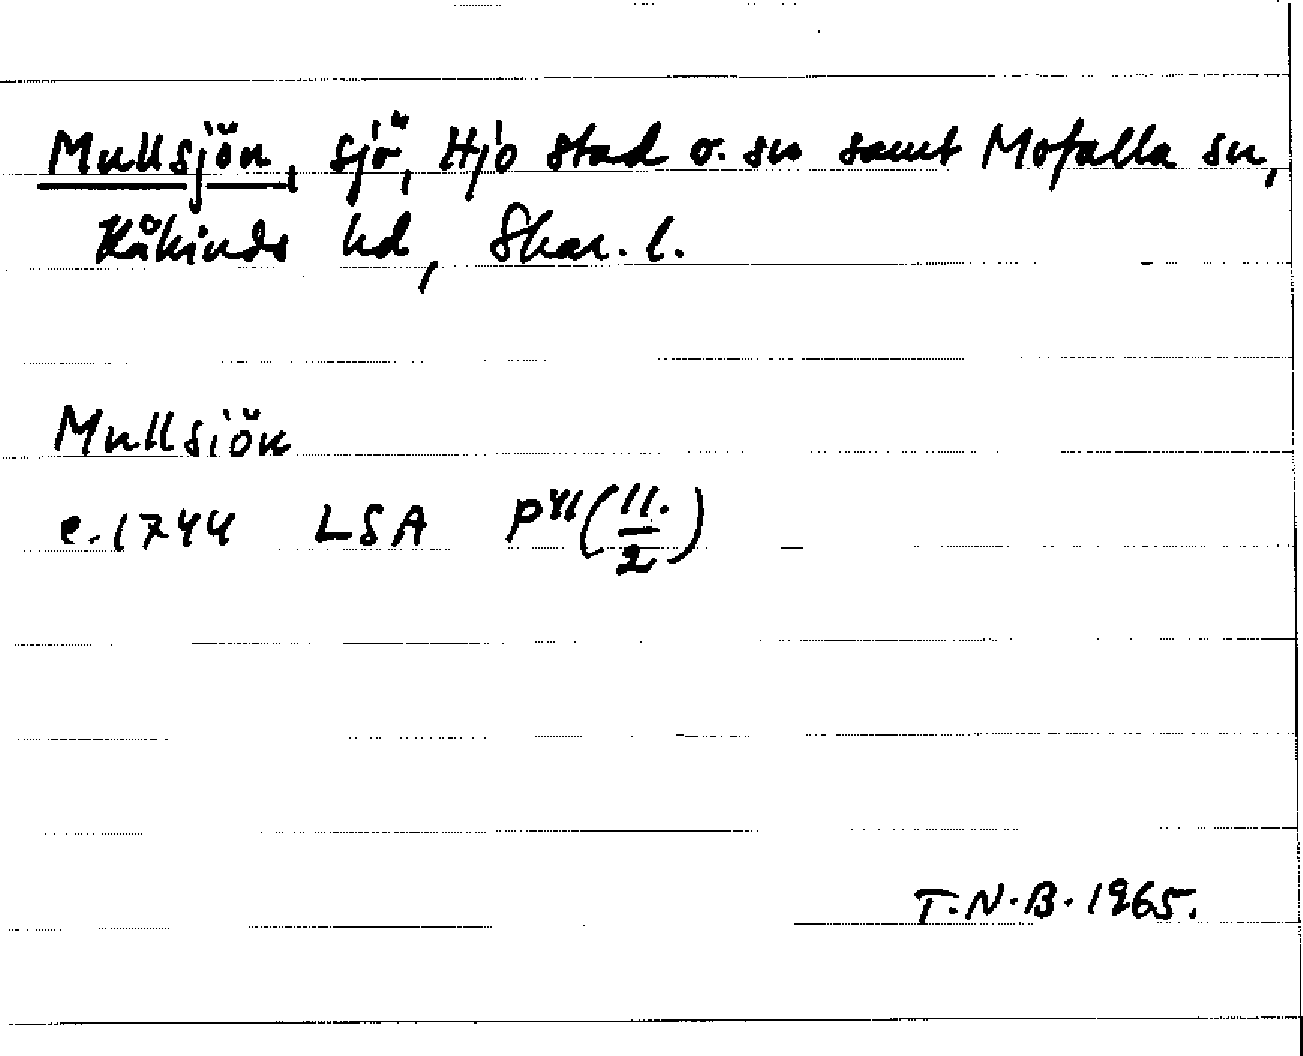 Mullsjön, sjö, Hjo stad o. sn samt Mofalla sn,
Kåkinds hd, Skar. l.
Mullsiön
c. 1744 LSA P (11./2)
T.N.B. 1965.